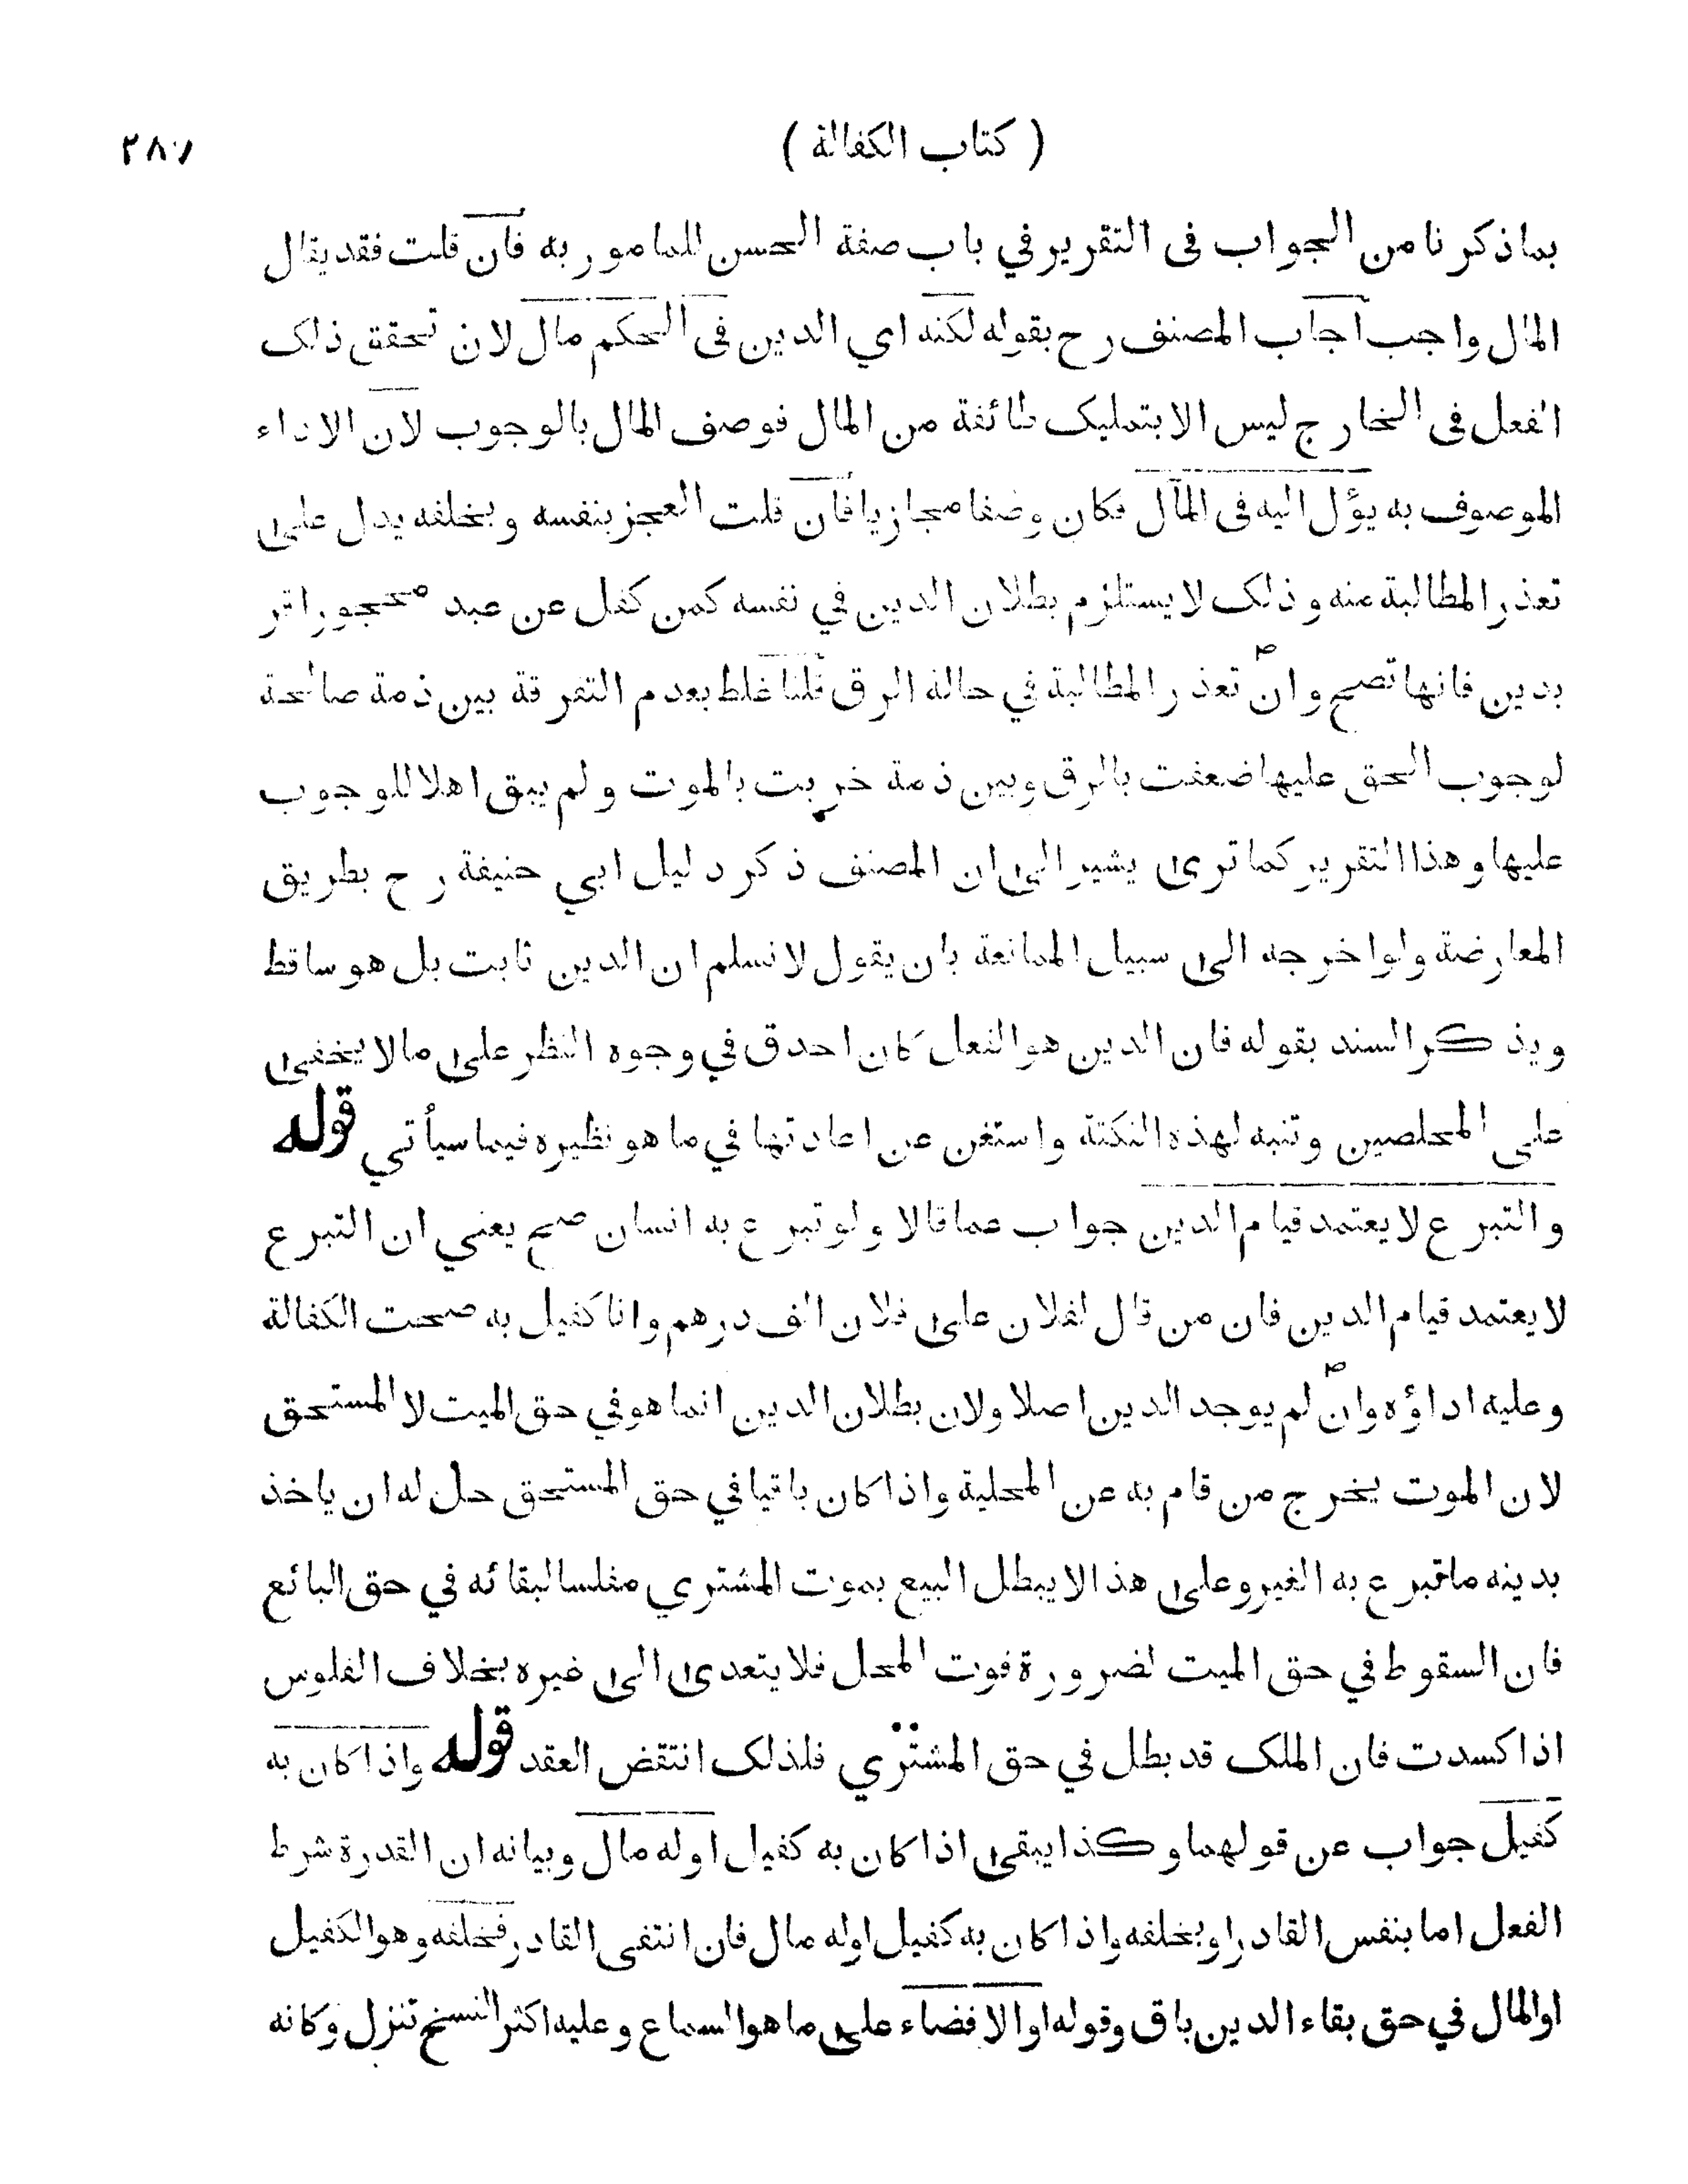 ( كتاب الكفالة )
بما ذكرنا من الجواب فى التقرير في باب صفة الحسن للمامور به فان قلت فقد يقال
المال واجب اجاب المصنف رح بقوله لكنه اي الدين فى الحكم مال لان تحقق ذلك
الفعل فى الخارج ليس الا بتمليك طائفة من المال فوصف المال بالوجوب لان الاداء
الموصوف به يؤل اليه فى المآل فكان وصفا مجازيا فان قلت العجز بنفسه وبخلفه يدل على
تعذر المطالبة عنه وذلك لا يستلزم بطلان الدين في نفسه كمن كفل عن عبد محجور اقر
بدين فانها تصح وان تعذر المطالبة في حالة الرق قلنا غلط بعدم التفرقة بين ذمة صالحة
لوجوب الحق عليها ضعفت بالرق وبين ذمة خربت بالموت ولم يبق اهلا للوجوب
عليها وهذا التقرير كما ترى يشير الى ان المصنف ذكر دليل ابي حنيفة رح بطريق
المعارضة ولو اخرجه الى سبيل الممانعة بان يقول لا نسلم ان الدين ثابت بل هو ساقط
ويذكر السند بقوله فان الدين هو الفعل كان احدق في وجوه النظر على ما لا يخفى
على المحلصين وتنبه لهذه النكتة واستغن عن اعادتها في ما هو نظيره فيما سيأتي قوله
والتبرع لا يعتمد قيام الدين جواب عما قالا ولو تبرع به انسان صح يعني ان التبرع
لا يعتمد قيام الدين فان من قال لفلان على فلان الف درهم وانا كفيل به صحت الكفالة
وعليه اداؤه وان لم يوجد الدين اصلا ولان بطلان الدين انما هو في حق الميت لا المستحق
لان الموت يخرج من قام به عن المحلية واذا كان باقيا في حق المستحق حل له ان ياخذ
بدينه ما تبرع به الغير وعلى هذا لا يبطل البيع بموت المشتري مفلسا لبقائه في حق البائع
فان السقوط في حق الميت لضرورة فوت المحل فلا يتعدى الى غيره بخلاف الفلوس
اذا كسدت فان الملك قد بطل في حق المشتري فلذلك انتقض العقد قوله واذا كان به
كفيل جواب عن قولهما وكذا يبقى اذا كان به كفيل او له مال وبيانه ان القدرة شرط
الفعل اما بنفس القادر او بخلفه واذا كان به كفيل او له مال فان انتفى القادر فخلفه وهو الكفيل
او المال في حق بقاء الدين باق وقوله او الافضاء على ما هو السماع وعليه اكثر النسخ تنزل وكانه